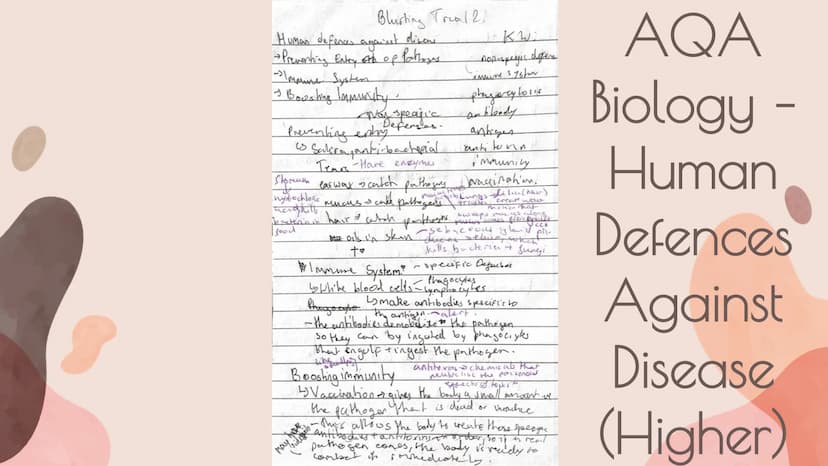 Blurting Trial 2.
Human defences against disease
K W.
→ Preventing Entry of Pathogens
non specific defence
→ Immune System
immune system
→ Boosting Immunity.
phagocytosis
non specific
Defenses.
antibody
Preventing entry
antigen
↳ Saliva, anti-bacterial
antitoxin
Tears - Have enzymes
immunity
earwax → catch pathogens
vaccination.
stomach
hydrochloric
bacteria in
food
mucus → catch pathogens
hair → catch pathogens
oils in skin - sebaceous gland
kills bacteria + fungi
Immune System - specific Defences
↳ White blood cells - Phagocytes
Lymphocytes
↳ make antibodies specific to
the antigen - alert.
- the antibodies the pathogen
so they can by phagocytes
that engulf + ingest the pathogen.
antitoxins → chemicals that
neutralise the
Boosting immunity
↳ Vaccination → gives the body a small amount of
the pathogen that is dead or
- This allows the body to create these specific
antibodies + antitoxins in order, so if a real
pathogen comes, the body is ready to
combat it immediately.
AQA
Biology –
Human
Defences
Against
Disease
(Higher)